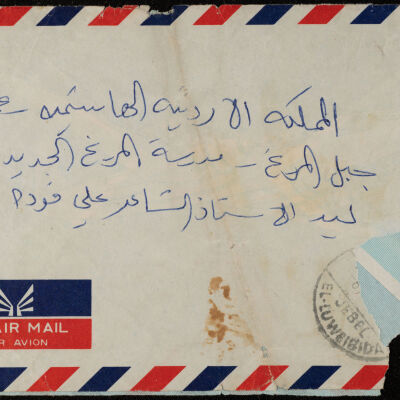 المملكه الاردنيه الهاشميه - ع
جبل المريخ - مدرسة المريخ الجديد
ليد الاستاذ الشاعر علي فودة
AIR MAIL
AVION
JEBEL
EL-LUWEIBIDA